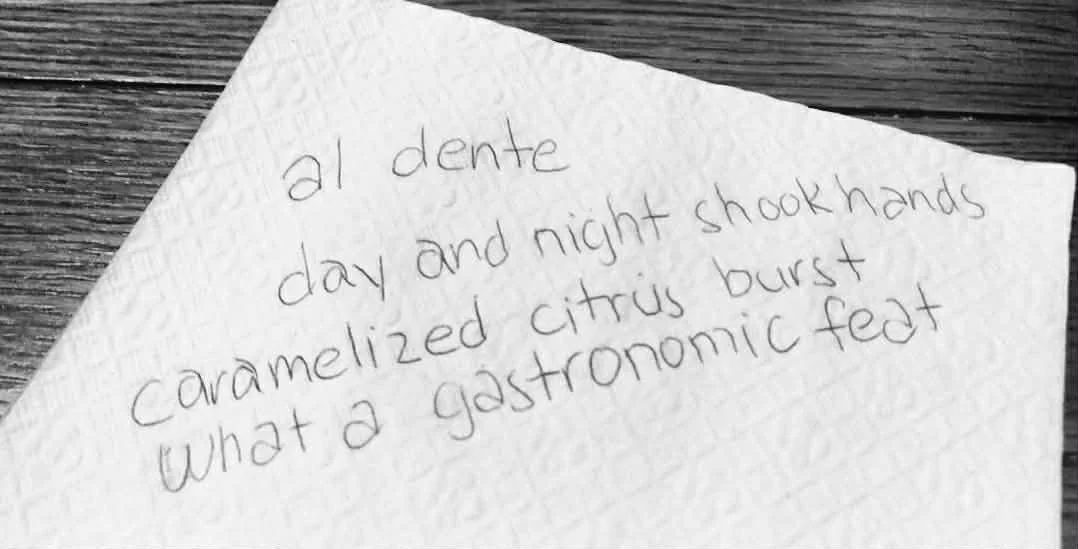 al dente
day and night shook hands
caramelized citrus burst
what a gastronomic feat